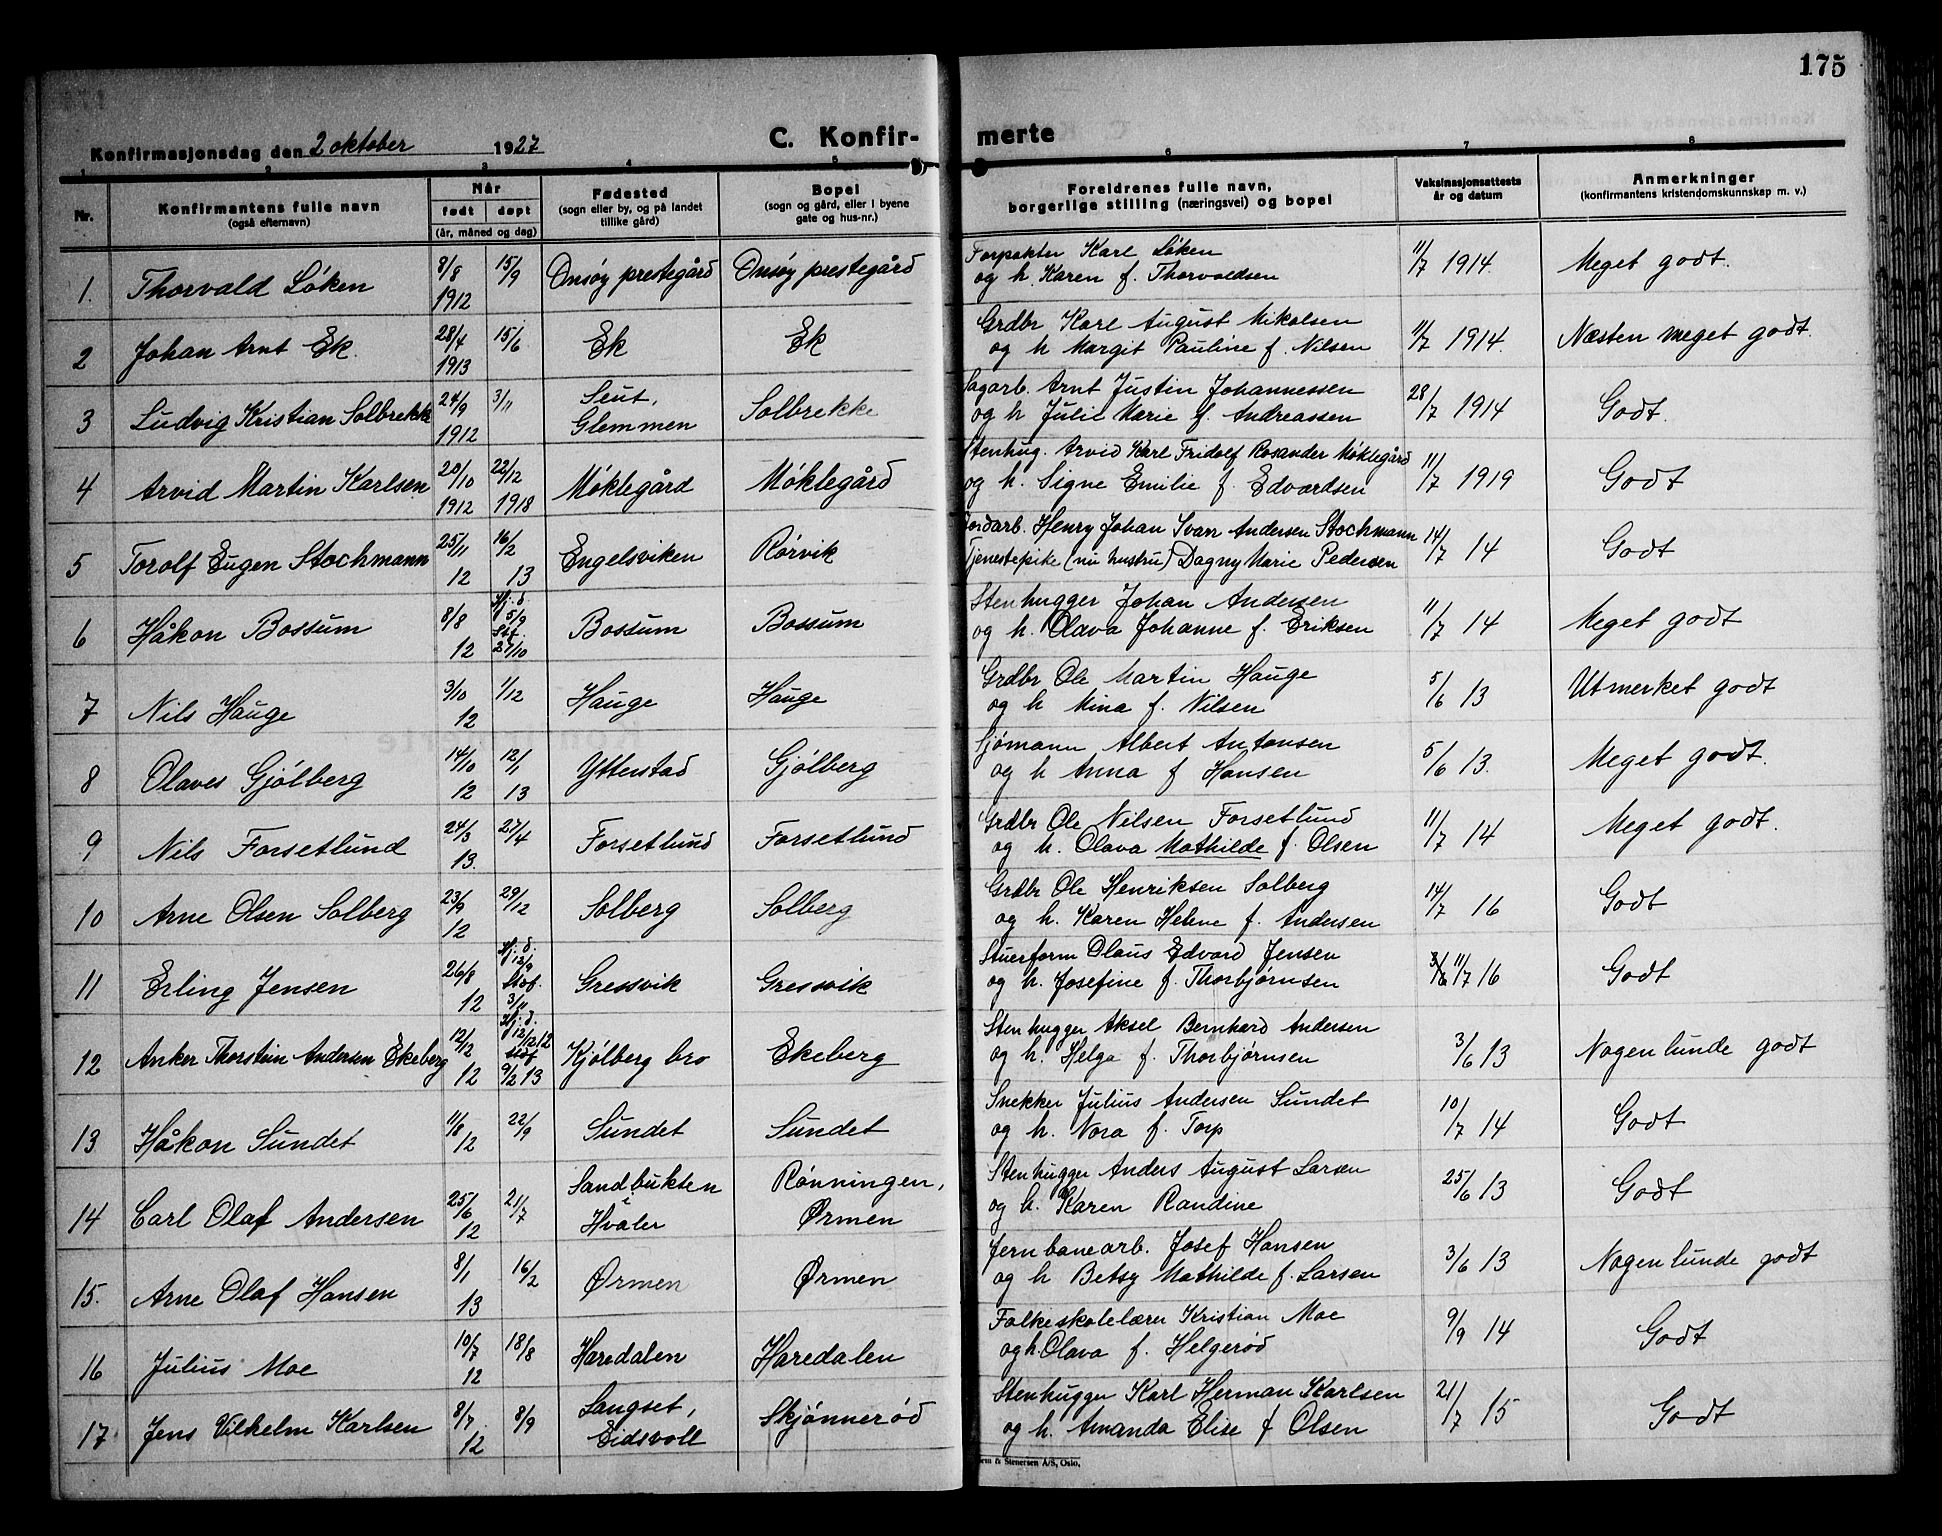 175
Konfirmasjonsdag den 2 oktober 1927
C. Konfir-
merte
1 2 3 4 5 6 7 8
Nr. Konfirmantens fulle navn (også efternavn) Når født døpt (år, måned og dag) Fødested (sogn eller by, og på landet tillike gård) Bopel (sogn og gård, eller i byene gate og hus-nr.) Foreldrenes fulle navn, borgerlige stilling (næringsvei) og bopel Vaksinasjonsattests år og datum Anmerkninger (konfirmantens kristendomskunnskap m. v.)
1. Thorvald Løken 8/8 1912 15/9 Onsøy prestegård Onsøy prestegård Forpakter Karl Løken
og h. Karen f. Thorvaldsen 11/7 1914. Meget godt.
2 Johan Arnt Ek. 28/4 1913 15/6 Ek Ek Grdbr Karl August Mikalsen
og h Margit Pauline f. Nilsen 11/7 1914. Næsten meget godt.
3 Ludvig Kristian Solbrekk 24/9 1912 3/11 Seut, Glemmen Solbrekke Sagarb. Arnt Justin Johannessen
og h Julie Marie f. Andreassen 28/7 1914 Godt.
4 Arvid Martin Karlsen 20/10 1912 22/12 1918 Møklegård Møklegård Stenhug. Arvid Karl Fridolf Rosander Møklegård
og h. Signe Emilie f. Edvardsen 11/7 1919 Godt
5 Torolf Eugen Stochmann 25/11 12 16/2 13 Engelsviken Rørvik Jordarb. Henry Johan Ivarr Andersen Stochmann
Tjenestepike (nu hustru) Dagny Marie Pedersen 14/7 14 Godt
6 Håkon Bossum 8/8 12 Hj. d. 5/9 Stf. 27/10 Bossum Bossum Stenhugger Johan Andersen
og h. Olava Johanne f. Eriksen 11/7 14 Meget godt
7 Nils Hauge 3/10 12 1/12 Hauge Hauge Grdbr Ole Martin Hauge
og h Mina f. Nilsen 5/6 13 Utmerket godt
8 Olaves Gjølberg 14/10 12 12/1 13 Ytterstad Gjølberg Sjømann Albert Antonsen
og h Anna f Hansen 5/6 13. Meget godt.
9 Nils Forsetlund 24/3 13. 27/4 Forsetlund Forsetlund Grdbr Ole Nilsen Forsetlund
og h. Olava Mathilde f. Olsen 11/7 14 Meget godt.
10 Arne Olsen Solberg 23/9 12 29/12 Solberg Solberg Grdbr Ole Henriksen Solberg
og h. Karen Helene f. Andersen 14/7 16 Godt
11 Erling Jensen 26/8 12 Hj. d. 13/9 Stof. 3/11 Gressvik Gressvik Stuerform Olaus Edvard Jensen
og h. Josefine f. Thorbjørnsen 11/7 16 Godt
12 Anker Thorstein Andersen Ekeberg 12/12 12 Hj. d. 12/12 12 stof 9/2 13 Kjølberg bro Ekeberg Stenhugger Aksel Bernhard Andersen
og h. Helga f. Thorbjørnsen 3/6 13 Nogenlunde godt
13 Håkon Sundet 11/8 12 22/9 Sundet Sundet Snekker Julius Andersen Sundet
og h. Nora f. Torp 10/7 14 Godt
14 Carl Olaf Andersen 25/6 12 21/7 Sandbukten i Hvaler Rønningen, Ørmen Stenhugger Anders August Larsen
og h. Karen Randine 25/6 13 Godt
15. Arne Olaf Hansen 8/1 13 16/2 Ørmen Ørmen Jernbanearb. Josef Hansen
og h Betsy Mathilde f. Larsen 3/6 13 Nogenlunde godt
16 Julius Moe 10/7 12 18/8 Haredalen Haredalen Folkeskolelærer Kristian Moe
og h. Olava f. Helgerød 9/9 14 Godt
17 Jens Vilhelm Karlsen 8/7 12 8/9 Langset, Eidsvoll Skjønnerød Stenhugger Karl Herman Karlsen
og h. Amanda Elise f Olsen 21/7 15 Godt
& Stenersen A/S, Oslo.